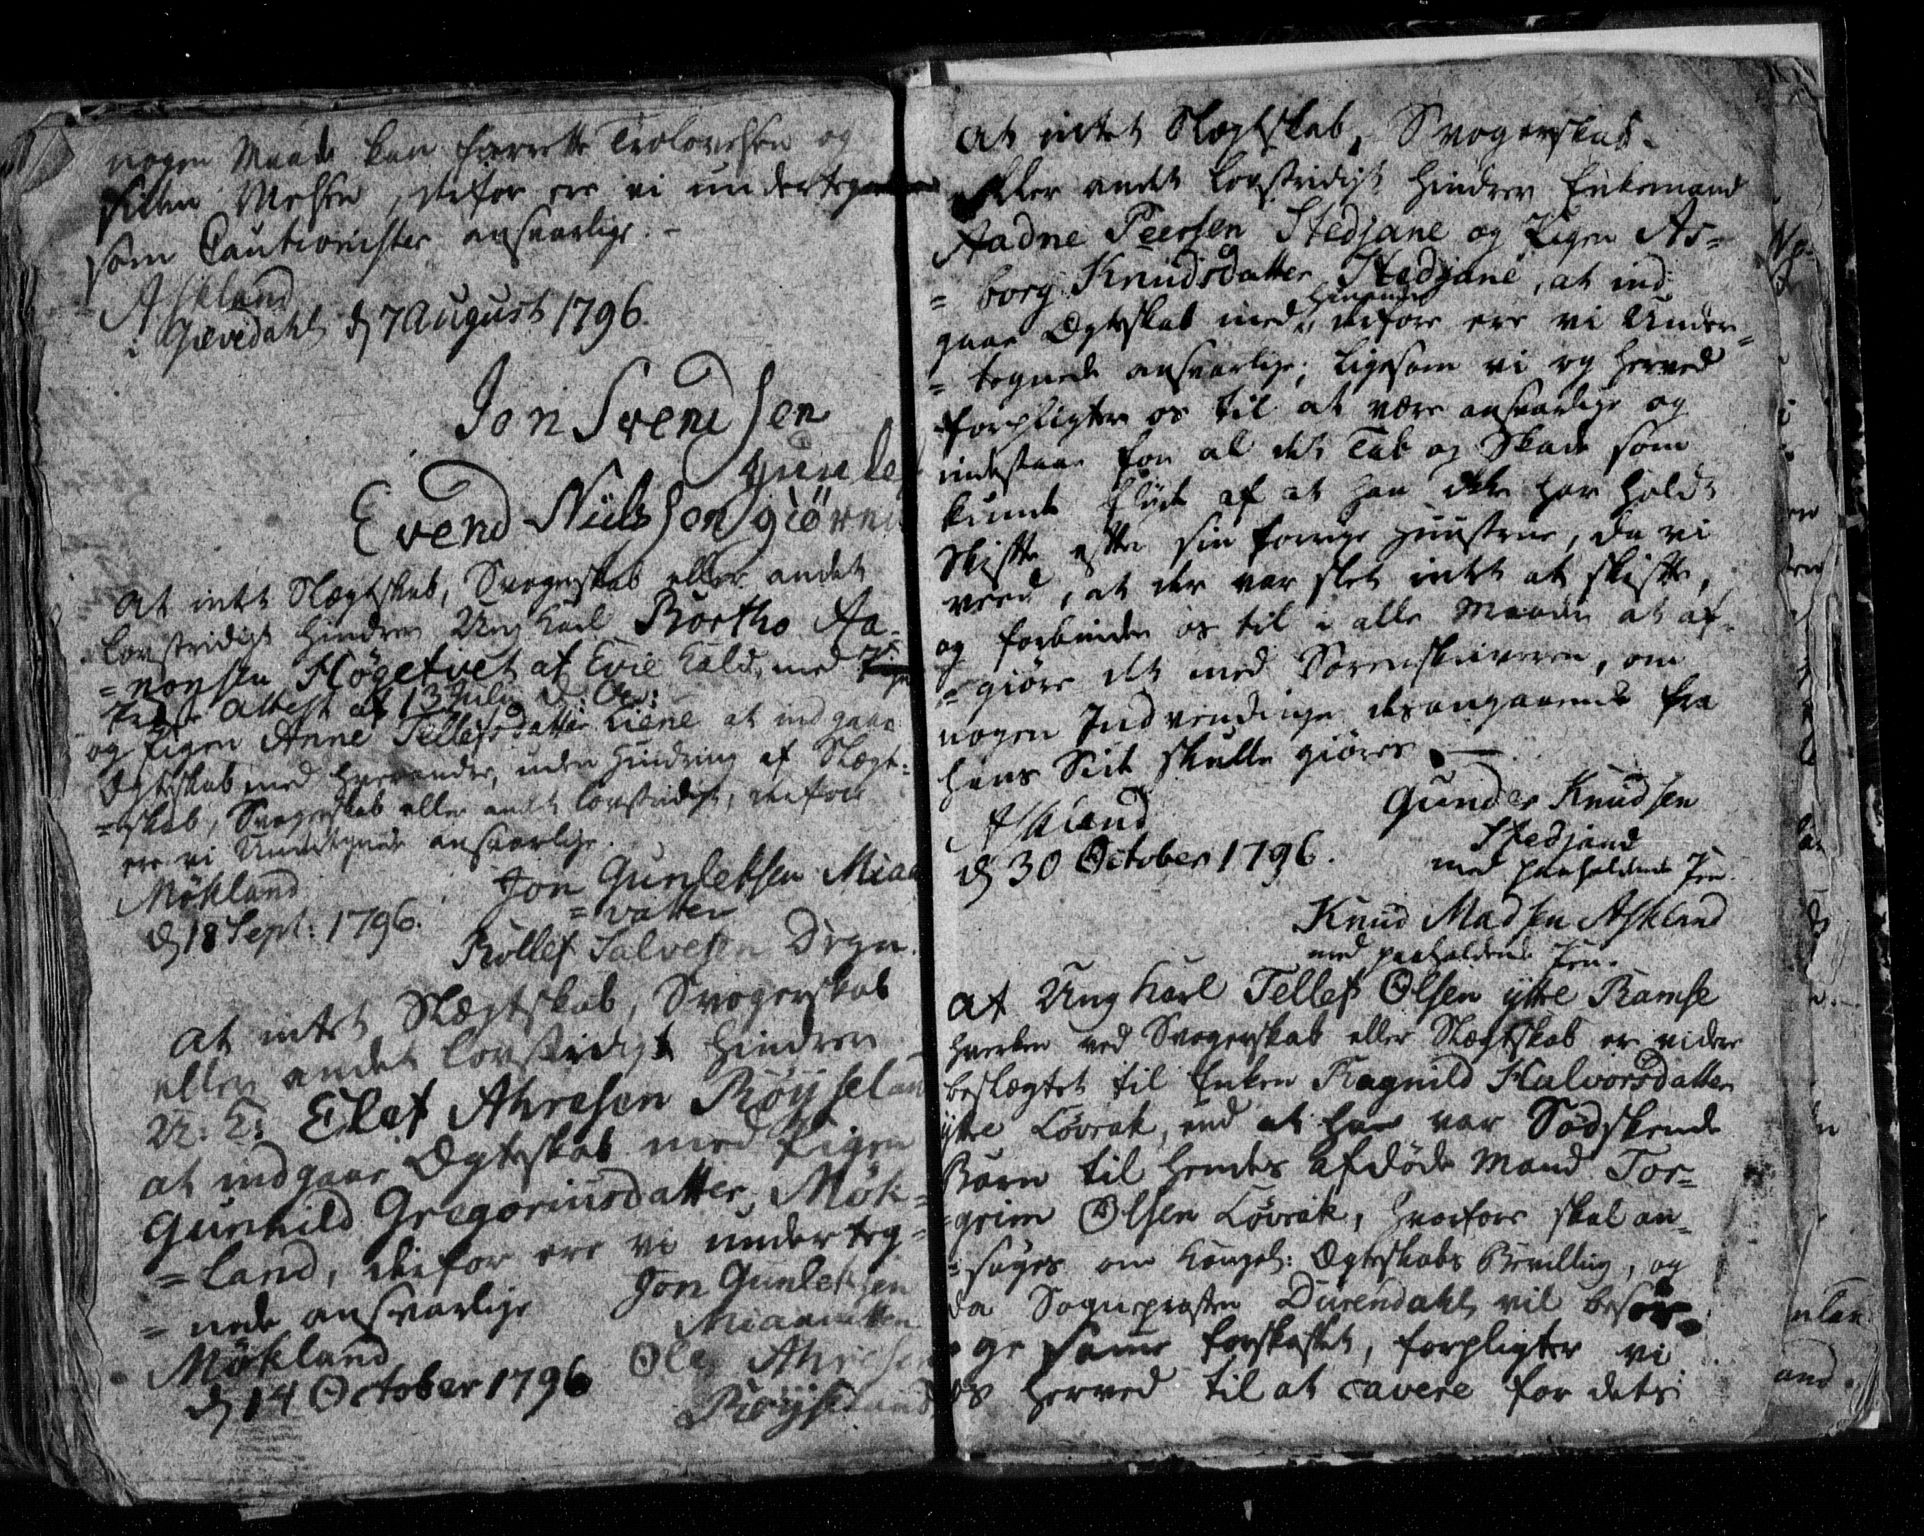 nogen Maade kan forrette Trolovelsen og
siden Vielsen, derfor ere vi undertegnede
som Cautionister ansvarlige. -
Askland
i Gievedahl d 7 August 1796.
Jon Svend sen
Evend Niels sen
at intet Slægtskab, Svogerskab eller andet
lovstridigt hindrer Ung Karl Bortho Aa-
= nonsen Høgetvet af Evie Kald, med
Attest af 13 July
og Pigen Anne Tellefsdatter Liene at indgaae
Ægteskab med hverandre, uden Hindring af Slægt-
= skab, Svogerskab eller andet lovstridigt, derfore
ere vi Undertegnede ansvarlige.
Mökland
d 18 Sept: 1796.
Jon Gunleksen Miaa
= vatten
Rollef Salvesen Degn.
at intet Slægtskab, Svogerskab
eller andet lovstridigt hindrer
U: K: Elef Ahresen Röyselan
at indgaae Ægteskab med Pigen
Gunhild Gregoriusdatter Mök-
= land, derfor ere vi underteg-
= nede ansvarlige
Mökland
d 14 October 1796
Jon Gunleksen
Miaavatten
Ole Ahresen
Röyseland
at intet Slægtskab, Svogerskab
eller andet lovstridigt hindrer Enkemand
Aadne Peersen Stedjane og Pigen As-
= borg Knudsdatter Stedjane, at ind
gaae Ægteskab med hinanden derfore ere vi Under-
= tegnede ansvarlige; ligesom vi og herved
forpligter os til at være ansvarlige og
indestaae for al det Tab og Skade som
kunde flyde af at han ikke har holdt
Skifte efter sin forrige Huustrue, da vi
veed, at der var slet intet at skifte,
og forbinder os til i alle Maader at af-
= giöre det med Sorenskriveren, om
nogen Indvendinge desangaaende fra
hans Side skulle giöres. —
Askland
d 30 October 1796.
Gunder Knudsen
Stedjane
med paaholdende Pen.
Knud Madsen Askland
med paaholdende Pen.
at Ung Karl Tellef Olsen ytre Ramse
hverken ved Svogerskab eller Slægtskab er videre
beslægtet til Enken Ragnild Halvorsdatter
ytre Lövrak, end at han var Södskende
Barn til hendes afdöde Mand Tor-
= grim Olsen Lövrak, hvorfore skal an-
= söges om Kongel: Ægteskabs Bevilling, og
da Sognepræsten Durendahl vil besör-
ge samme forskaffet, forpligter vi
os herved til at cavere for dets